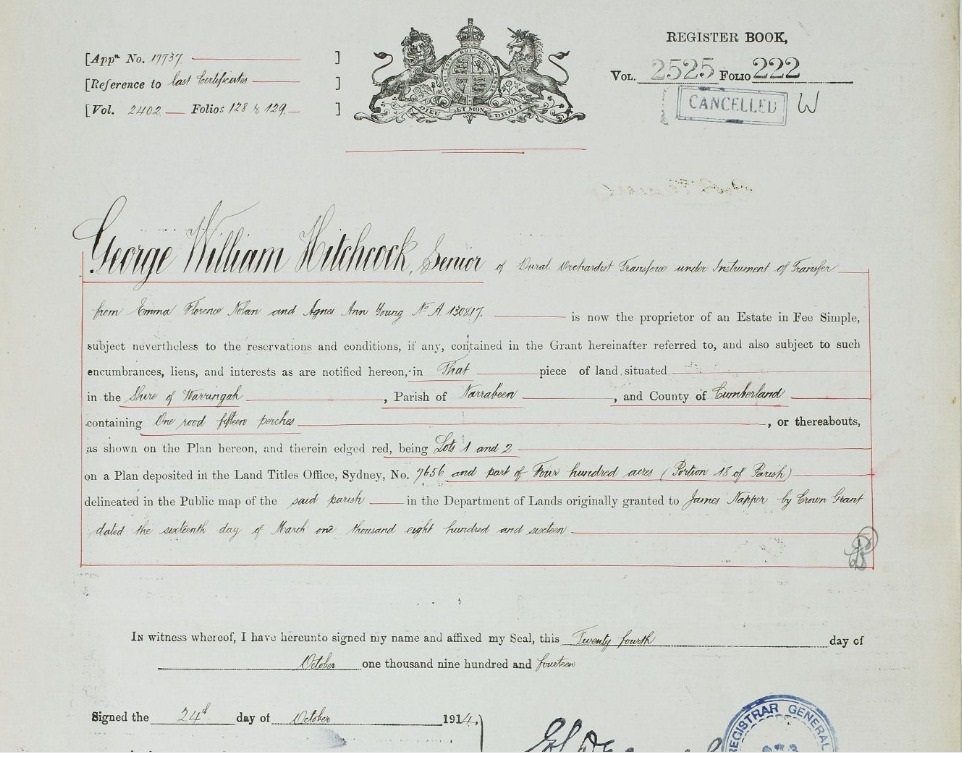 REGISTER BOOK,
Vol. 2525 Folio 222
CANCELLED W
[Appn No. 17737 ]
[Reference to last Certificates ]
[Vol. 2402 Folios 128 & 129 ]
George William Hitchcock, Senior of Dural Orchardist Transferee under Instrument of Transfer
from Emma Florence Nolan and Agnes Ann Young No A 130817. is now the proprietor of an Estate in Fee Simple,
subject nevertheless to the reservations and conditions, if any, contained in the Grant hereinafter referred to, and also subject to such
encumbrances, liens, and interests as are notified hereon, in That piece of land situated
in the Shire of Warringah , Parish of Narrabeen , and County of Cumberland
containing One rood fifteen perches , or thereabouts,
as shown on the Plan hereon, and therein edged red, being Lots 1 and 2
on a Plan deposited in the Land Titles Office, Sydney, No. 7656 and part of Four hundred acres (Portion 18 of Parish)
delineated in the Public map of the said parish in the Department of Lands originally granted to James Napper by Crown Grant
dated the sixteenth day of March one thousand eight hundred and sixteen
In witness whereof, I have hereunto signed my name and affixed my Seal, this Twenty fourth day of
October one thousand nine hundred and fourteen
Signed the 24th day of October 1914.
REGISTRAR GENERAL